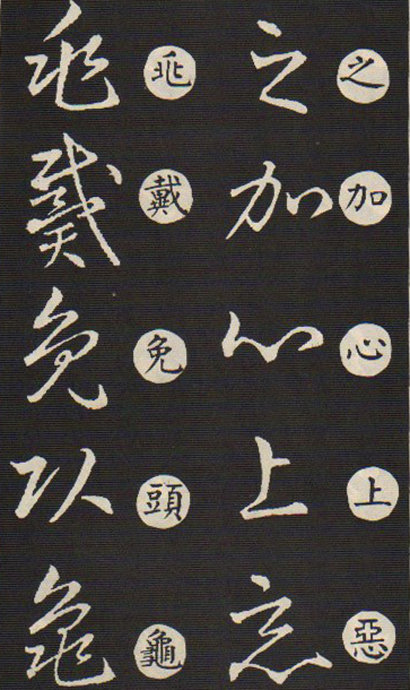 之加心上惡
之加心上惡
兆戴免頭龜
兆戴免頭龜